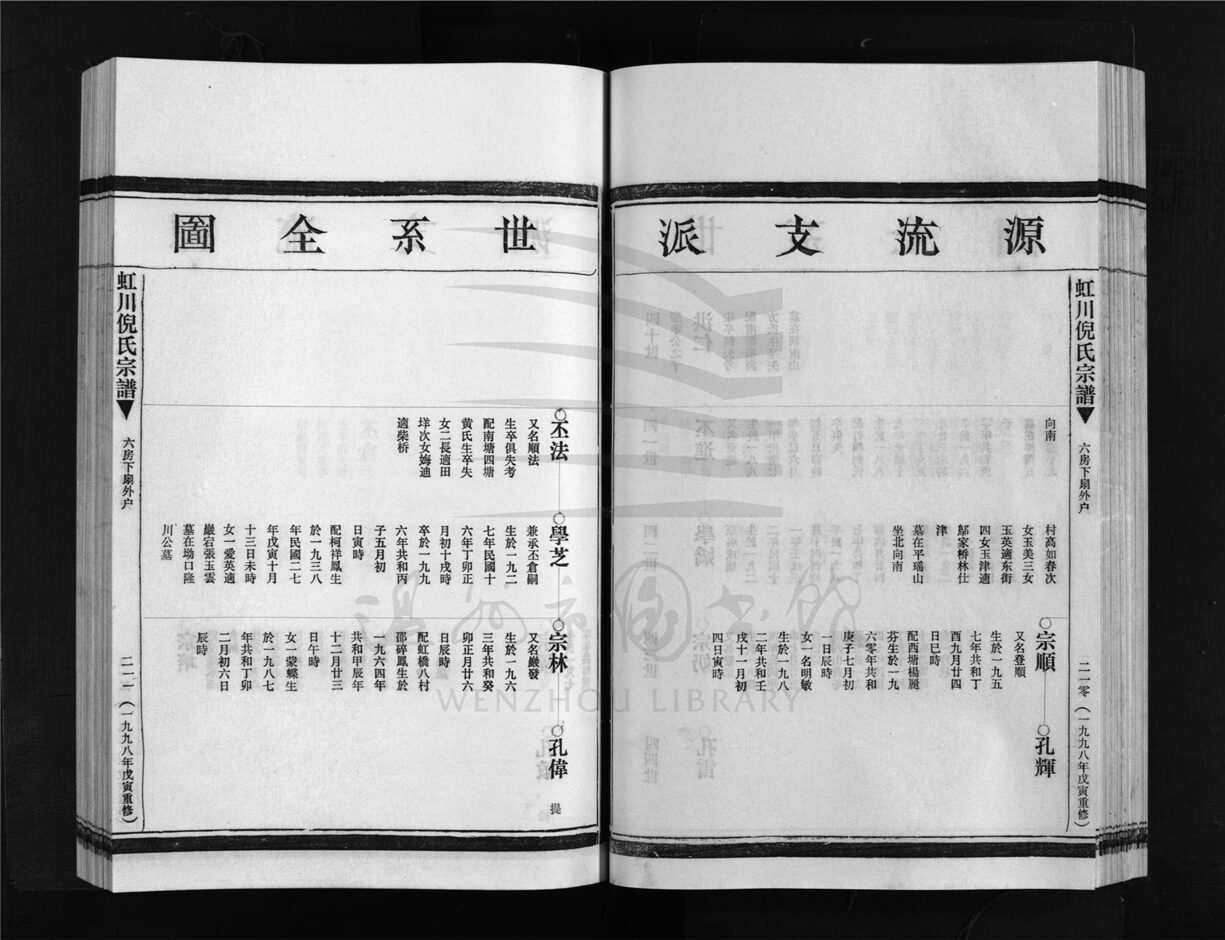 源流支派
虹川倪氏宗譜
六房下扇外户
二一零（一九九八年戊寅重修）
向南
村萬如春次
女玉美三女
玉英適东街
四女玉津適
鄔家桥林仕
津
墓在平瑶山
坐北向南
宗順
又名登順
生於一九五
七年共和丁
酉九月廿四
日巳時
配西塘楊麗
芬生於一九
六零年共和
庚子七月初
一日辰時
女一名明敏
生於一九八
二年共和壬
戌十一月初
四日寅時
孔輝
世系全圖
丕法
又名順法
生卒俱失考
配南塘四塘
黄氏生卒失
女二長適田
垟次女娒迪
適柴桥
學芝
兼承丕倉嗣
生於一九二
七年民國十
六年丁卯正
月初十戌時
卒於一九九
六年共和丙
子五月初
日寅時
配柯祥鳳生
於一九三八
年民國二七
年戊寅十月
十三日未時
女一愛英適
巖宕張玉雲
墓在坳口隆
川公墓
宗林
又名巖發
生於一九六
三年共和癸
卯正月廿六
日辰時
配虹橋八村
邵碎鳳生於
一九六四年
共和甲辰年
十二月廿三
日午時
女一蒙蝶生
於一九八七
年共和丁卯
二月初六日
辰時
孔偉
提
虹川倪氏宗譜
六房下扇外户
二一一（一九九八年戊寅重修）
溫州市圖書館
WENZHOU LIBRARY